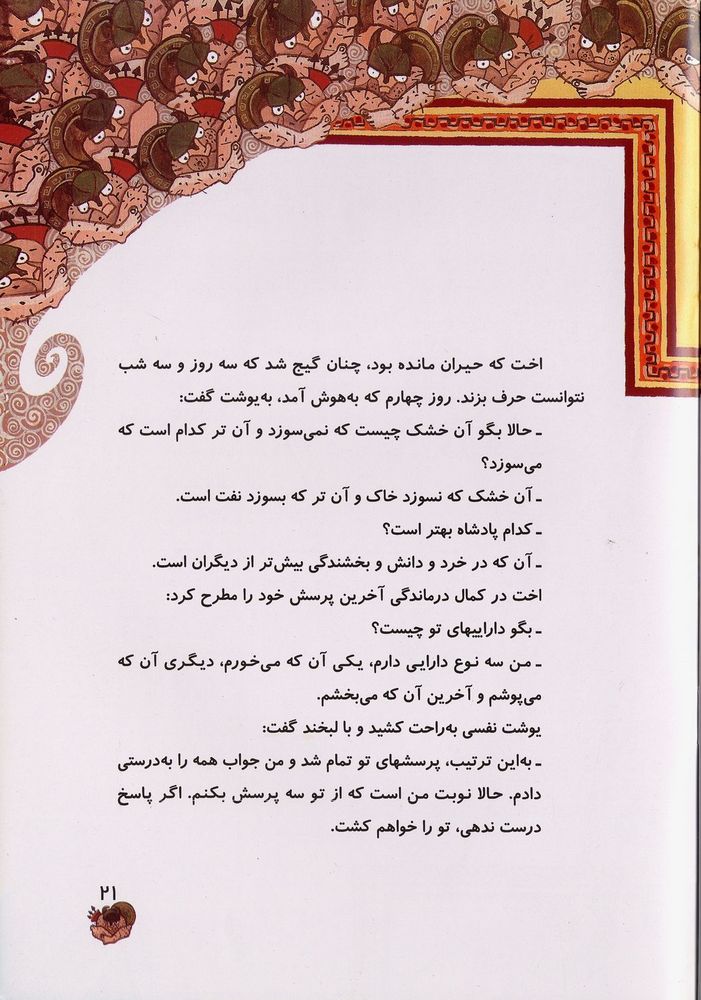 اخت که حیران مانده بود، چنان گیج شد که سه روز و سه شب
نتوانست حرف بزند. روز چهارم که به‌هوش آمد، به‌یوشت گفت:
ـ حالا بگو آن خشک چیست که نمی‌سوزد و آن تر کدام است که
می‌سوزد؟
ـ آن خشک که نسوزد خاک و آن تر که بسوزد نفت است.
ـ کدام پادشاه بهتر است؟
ـ آن که در خرد و دانش و بخشندگی بیش‌تر از دیگران است.
اخت در کمال درماندگی آخرین پرسش خود را مطرح کرد:
ـ بگو داراییهای تو چیست؟
ـ من سه نوع دارایی دارم، یکی آن که می‌خورم، دیگری آن که
می‌پوشم و آخرین آن که می‌بخشم.
یوشت نفسی به‌راحت کشید و با لبخند گفت:
ـ به‌این ترتیب، پرسشهای تو تمام شد و من جواب همه را به‌درستی
دادم. حالا نوبت من است که از تو سه پرسش بکنم. اگر پاسخ
درست ندهی، تو را خواهم کشت.
۲۱